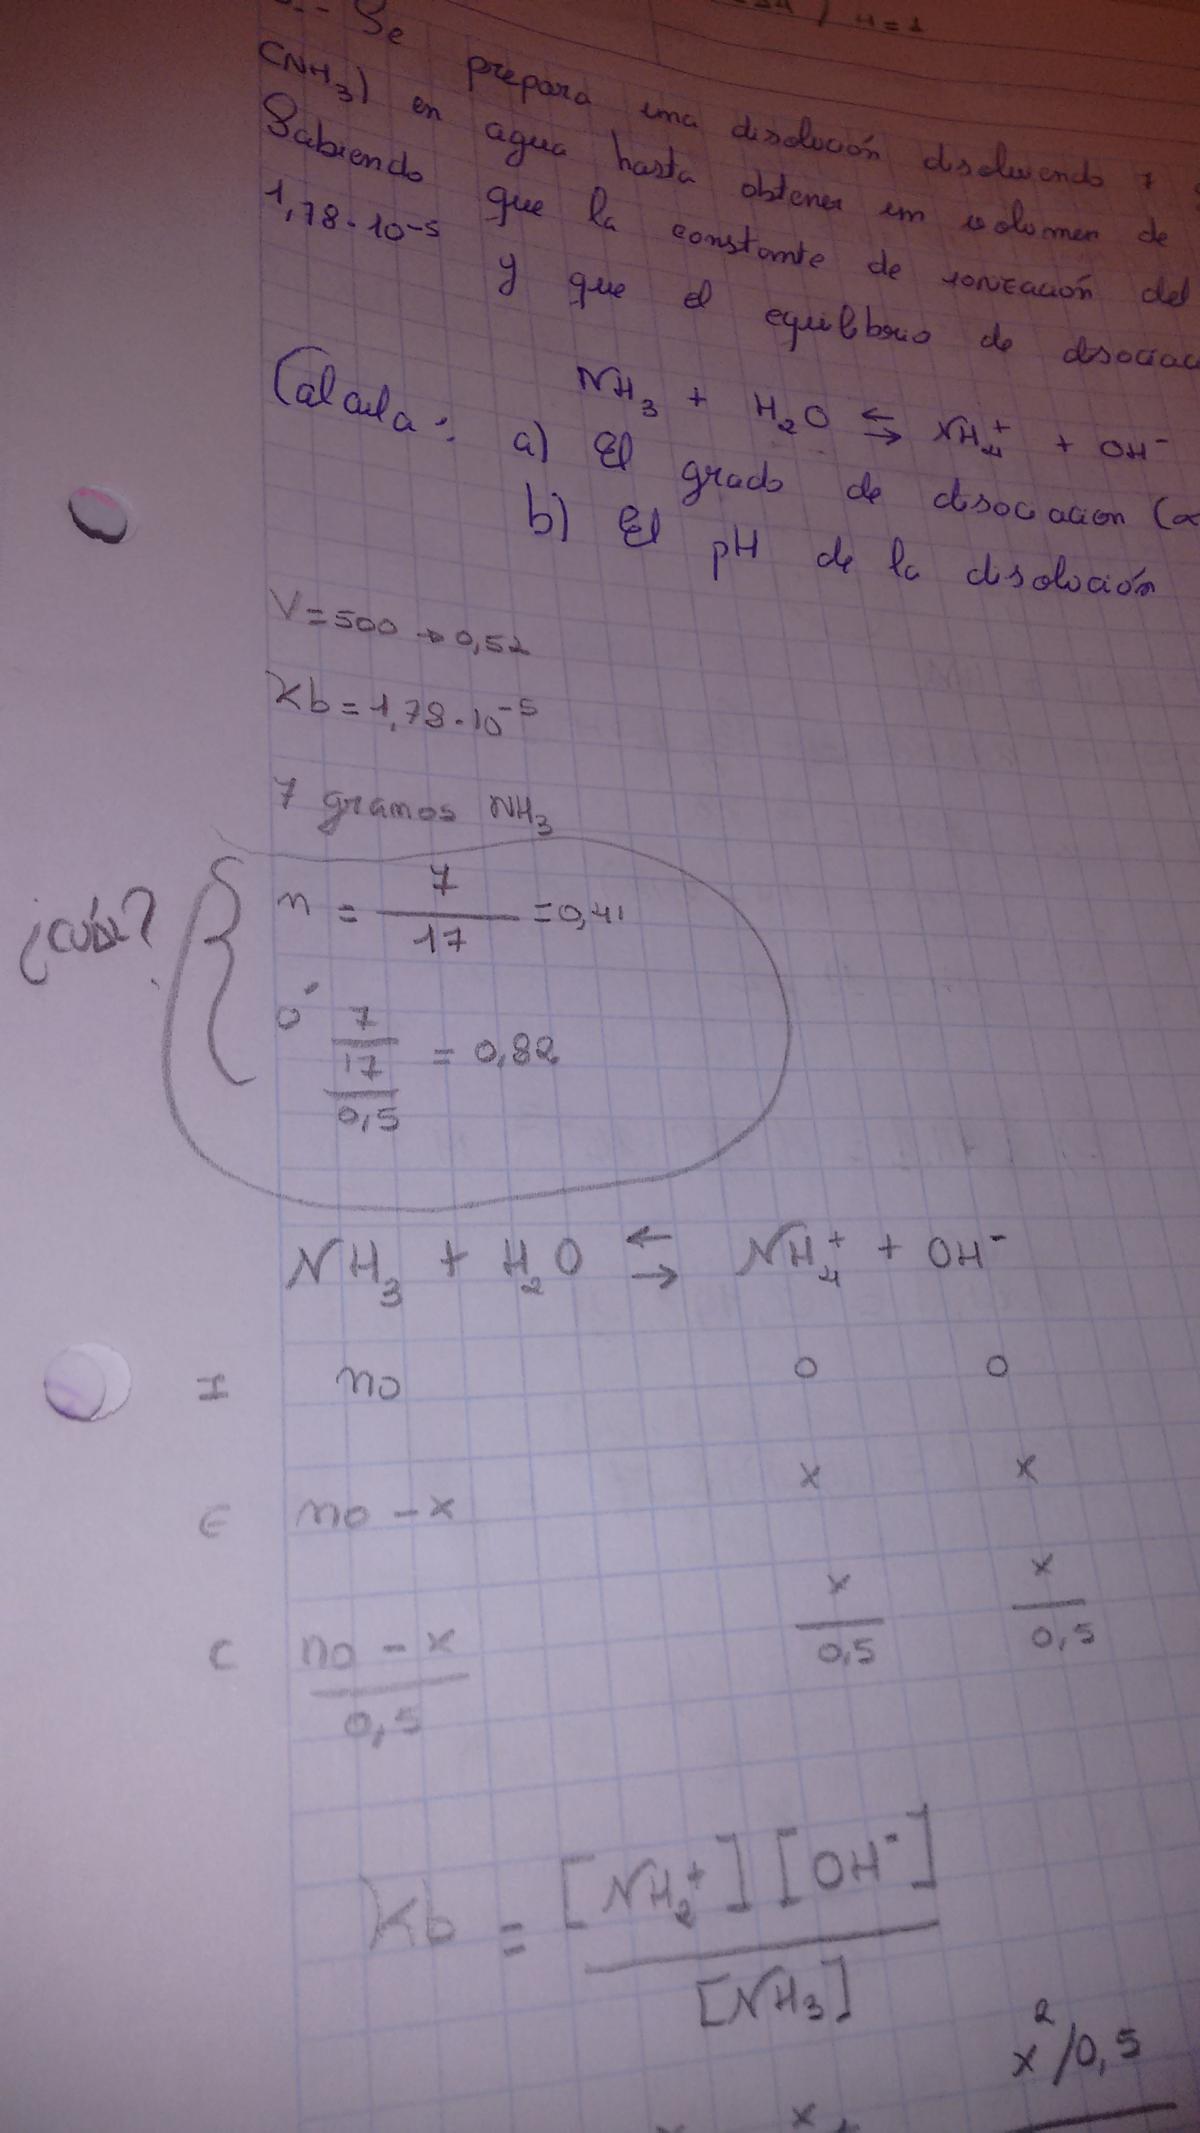 Se prepara una disolución disolviendo 7
(NH3) en agua hasta obtener un volumen de
Sabiendo que la constante de ionización del
1,78·10-5 y que el equilibrio de disociac
NH3 + H2O ⇆ NH4+ + OH-
Calcula: a) El grado de disociación (α
b) El pH de la disolución
V=500 → 0,5L
Kb=1,78·10-5
7 gramos NH3
¿cuál?
n = 7/17 = 0,41
ó 7/17/0,5 = 0,82
NH3 + H2O ⇆ NH4+ + OH-
I no 0 0
E no-x x x
C no-x/0,5 x/0,5 x/0,5
Kb = [NH2+][OH-]/[NH3]
x2/0,5